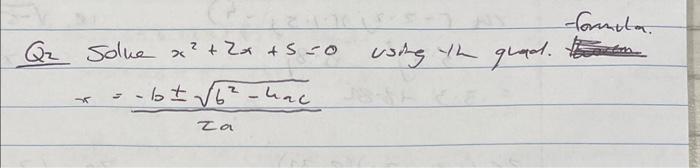 Q2 Solve x² + 2x + 5 = 0 using th quad. formula.
x = -b ± √b² - 4ac
2a